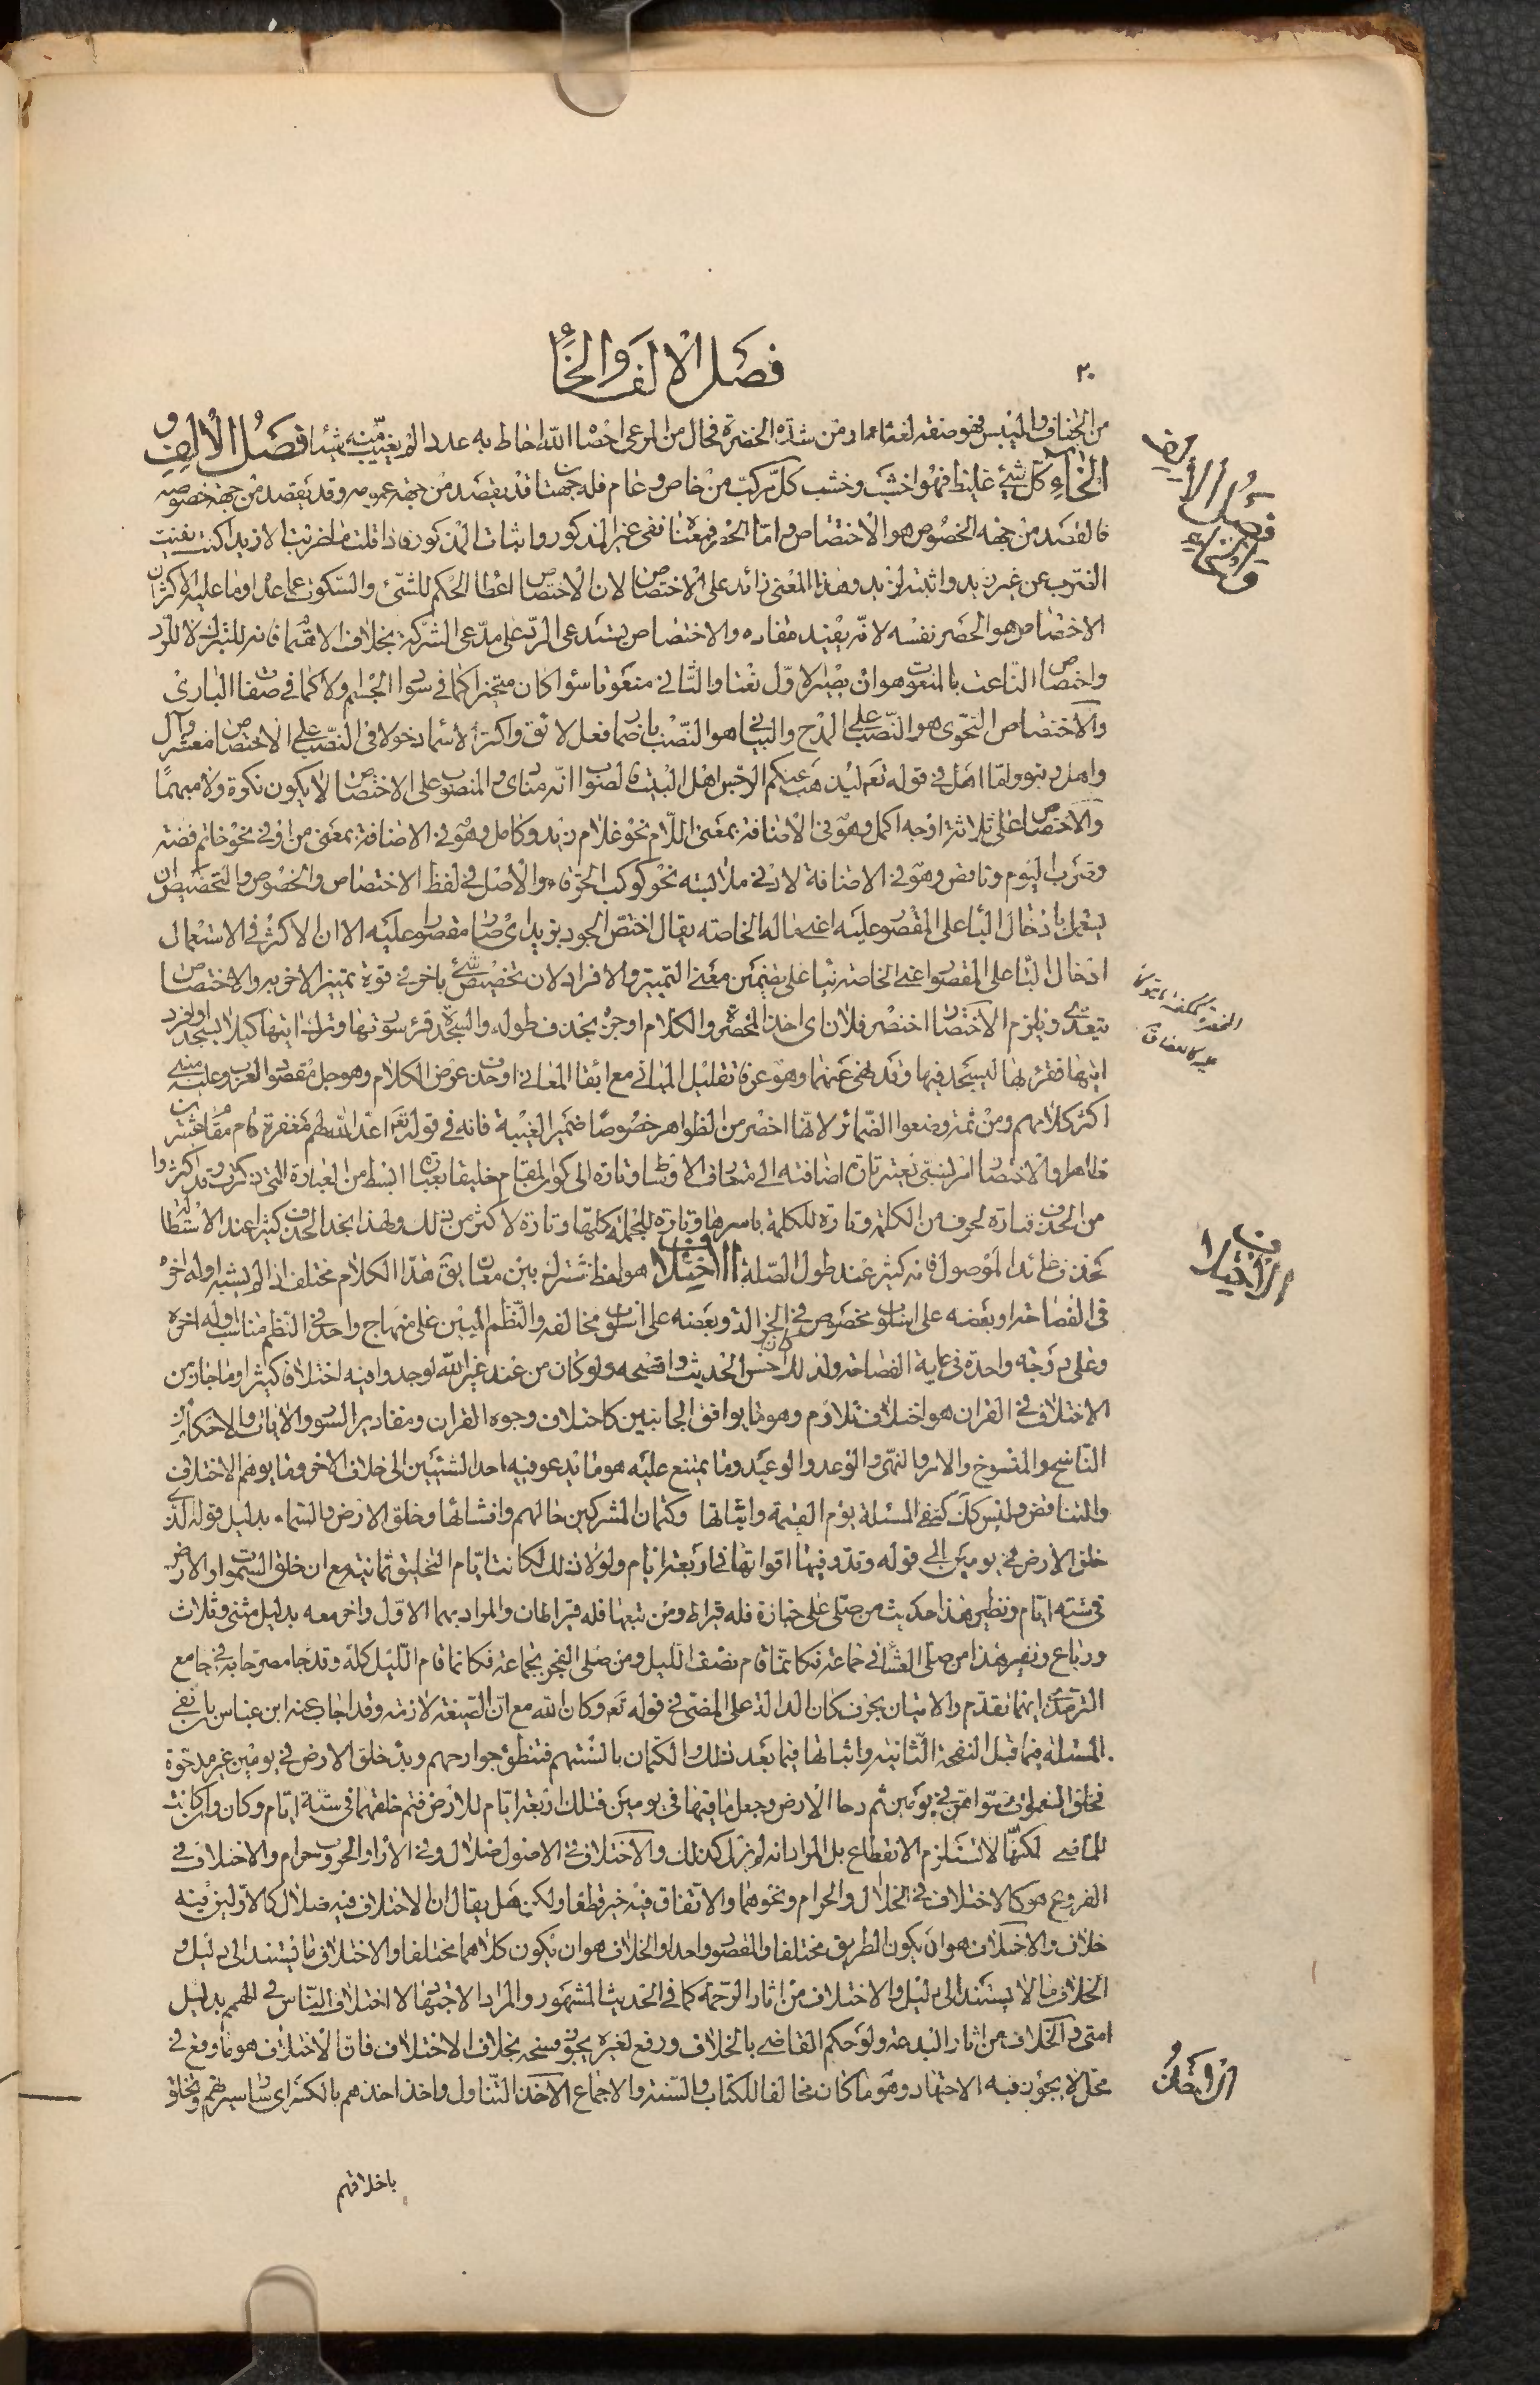 فصل الالف والخاء
٣٠
من الجفاف واليبس فهو صفة لغثا او من شدة الخضرة فحال من المرعى احصا الله احاط به عددا لم يغيب منه شيئا فصل الالف و
الخاء كل شئ غليظ فهو اخشب وخشب كل مركب من خاص وعام فله جهتان قد يقصد من جهة عمومه وقد يقصد من جهة خصوصه
فالقصد من جهة الخصوص هو الاختصاص واما الحصر فمعناه نفى غير المذكور واثبات المذكور فاذا قلت ما ضربت الا زيدا كنت نفيت
الضرب عن غير زيد واثبته لزيد وهذا المعنى زائد على الاختصاص لان الاختصاص اعطا الحكم للشئ والسكوت عما عداه وما عليه الاكثر ان
الاختصاص هو الحصر نفسه لانه يفيد مفاده والاختصاص يستدعى الرد على مدعى الشركة بخلاف الاهتمام فانه للتبرك لا للرد
واختصاص الناعت بالمنعوت هو ان يصير الاول نعتا والثانى منعوتا سواء كان متحيزا كما فى سواد الجسم ولا كما فى صفات البارى
والاختصاص النحوى هو النصب على المدح والبيانى هو النصب باضمار فعل لائق واكثر الاسماء دخولا فى النصب على الاختصاص معشر وآل
واهل وبنو واما اهل فى قوله تعم ليذهب عنكم الرجس اهل البيت فالصواب انه منادى والمنصوب على الاختصاص لا يكون نكرة ولا مبهما
والاختصاص على ثلاثة اوجه اكمل وهو فى الاضافة بمعنى اللام نحو غلام زيد وكامل وهو فى الاضافة بمعنى من او فى نحو خاتم فضة
وضرب اليوم وناقص وهو فى الاضافة لادنى ملابسته نحو كوكب الخرقاء والاصل فى لفظ الاختصاص والخصوص والتخصيص ان
يستعمل بادخال البأ على المقصور عليه اعنى ماله الخاصة يقال اختص الجود بزيد اى صار مقصورا عليه الا ان الاكثر فى الاستعمال
ادخال البأ على المقصور اعنى الخاصة بنأ على تضمين معنى التمييز والافراد لان تخصيص شئ باخر فى قوة تمييز الاخر به والاختصاص
يتعدى ويلزم الاختصار اختصر فلان اى اخذ المخصرة والكلام اوجزه بحذف طوله والسجدة قرئ سورتها وترك ايتها كيلا يسجد او افرد
ايتها فقرء بها ليسجد فيها وقد نهى عنهما وهو عرفا تقليل المبانى مع ابقاء المعانى او حذف عرض الكلام وهو جل مقصود العرب وعليه مبنى
اكثر كلامهم ومن ثمة وضعوا الضمائر لانها اخصر من الظواهر خصوصا ضمير الغيبة فانه فى قوله تعم اعد الله لهم مغفرة قام مقام عشرين
ظاهرا والاختصار امر نسبى يعتبر تارة اضافته الى متعارف الاوساط وتارة الى كون المقام خليقا بعبارة ابسط من العبارة التى ذكرت وقد اكثروا
من الحذف فتارة لحرف من الكلمة وتارة للكلمة باسرها وتارة للجملة كلها وتارة لاكثر من ذلك ولهذا تجد الحذف كثيرا عند الاستطالة
كحذف عائد الموصول فانه كثير عند طول الصلة الاختلاف هو لفظ مشترك بين معان يق هذا الكلام مختلف اذا لم يشبه اوله اخره
فى الفصاحة او بعضه على اسلوب مخصوص فى الجزالة وبعضه على اسلوب مخالفه والنظم المبين على منهاج واحد فى النظم مناسب اوله اخره
وعلى درجة واحدة فى غاية الفصاحة ولذلك كان احسن الحديث وافصحه ولو كان من عند غير الله لوجدوا فيه اختلافا كثيرا وما جاز من
الاختلاف فى القران هو اختلاف تلاؤم وهو ما يوافق الجانبين كاختلاف وجوه القران ومقادير السور والايات والاحكام من
الناسخ والمنسوخ والامر والنهى والوعد والوعيد وما يمتنع عليه هو ما يدعو فيه احد الشيئين الى خلاف الاخر وما يوهم الاختلاف
والتناقض وليس كك كنفى المسئلة يوم القيمة واثباتها وكتمان المشركين حالهم وافشائها وخلق الارض والسماء بدليل قوله الذى
خلق الارض فى يومين الى قوله وقدر فيها اقواتها فى اربعة ايام ولولا ذلك لكانت ايام التخليق ثمانية مع ان خلق السموات والارض
فى ستة ايام ونظير هذا حديث من صلى على جنازة فله قيراط ومن تبعها فله قيراطان والمراد بهما الاول واخر معه بدليل مثنى وثلاث
ورباع ونظير هذا من صلى العشاء فى جماعة فكانما قام نصف الليل ومن صلى الفجر بجماعة فكانما قام الليل كله وقد جا مصرحا به فى جامع
الترمذى ايهما تقدم والاتيان بحرف كان الدالة على المضى فى قوله تعم وكان الله مع ان الصيغة لازمة وقد اجاب عنه ابن عباس بان نفى
المسئلة فيما قبل النفخة الثانية واثباتها فيما بعد ذلك والكتمان بالسنتهم فتنطق جوارحهم وبدء خلق الارض فى يومين غير مدحوة
فخلق السموات فسواهن فى يومين ثم دحا الارض وجعل ما فيها فى يومين فتلك اربعة ايام للارض فتم خلقهما فى ستة ايام وكان وان كانت
للماضى لكنها لا تستلزم الانقطاع بل المراد انه لم يزل كذلك والاختلاف فى الاصول ضلال وفى الاراء والحروب حرام والاختلاف فى
الفروع هو كالاختلاف فى الحلال والحرام ونحوهما والاتفاق فيه خير قطعا ولكن هل يقال ان الاختلاف فيه ضلال كالاولين فيه
خلاف والاختلاف هو ان يكون الطريق مختلفا والمقصود واحدا والخلاف هو ان يكون كلاهما مختلفا والاختلاف ما يستند الى دليل و
الخلاف ما لا يستند الى دليل والاختلاف من اثار الرحمة كما فى الحديث المشهور والمراد الاجتهاد لا اختلاف الناس فى الهمم بدليل
امتى والخلاف من اثار البدعة ولو حكم القاضى بالخلاف ورفع لغيره يجوز فسخه بخلاف الاختلاف فان الاختلاف هو ما وقع فى
محل لا يجوز فيه الاجتهاد وهو ما كان مخالفا للكتاب والسنة والاجماع الاخذ التناول واخذ اخذهم بالكسر اى سار سيرهم وتخلق
باخلاقهم
فصل الالف
والخاء
الاختلاف
الاخذ